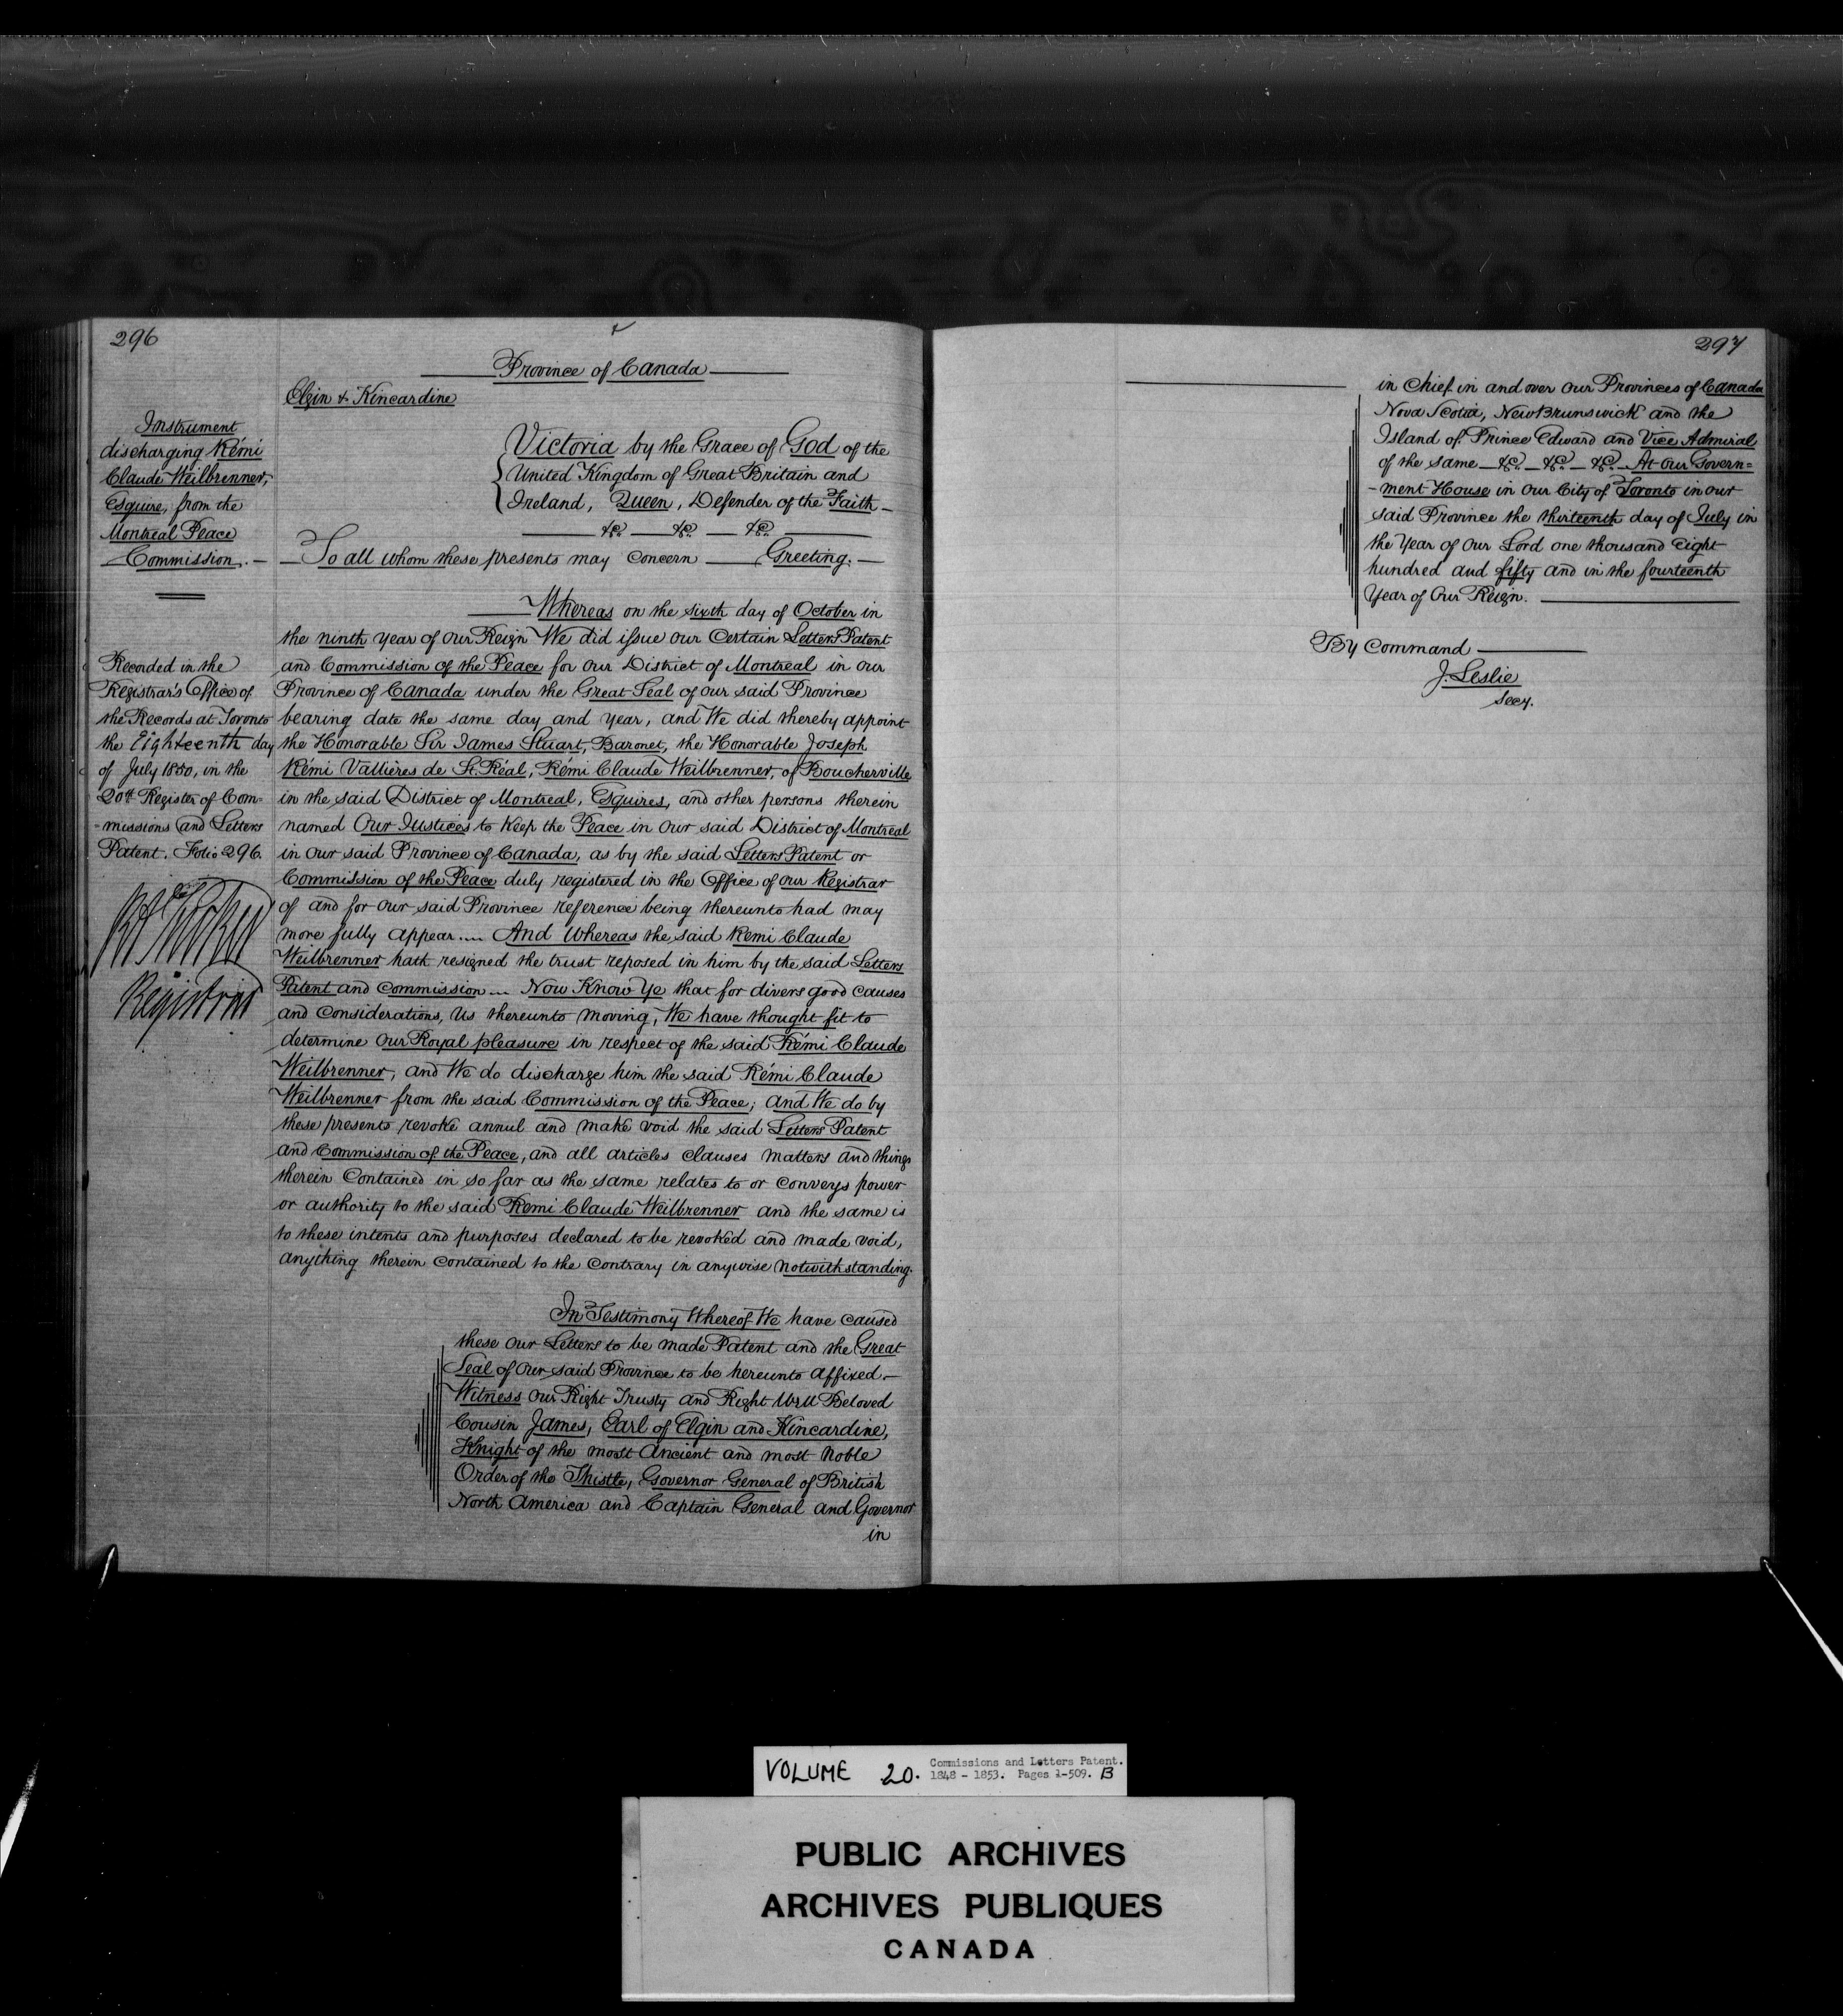 296
Province of Canada
Elgin & Kincardine
Instrument
discharging Rémi
Claude Weilbrenner,
Esquire, from the
Montreal Peace
Commission. —
Recorded in the
Registrar's Office of
the Records at Toronto
the Eighteenth day
of July 1850, in the
20th Register of Com=
=missions and Letters
Patent. Folio 296.
Registrar
Victoria by the Grace of God of the
United Kingdom of Great Britain and
Ireland, Queen, Defender of the Faith —
&c. — &c. — &c.
To all whom these presents may concern — Greeting. —
Whereas on the sixth day of October in
the ninth year of our Reign We did issue our Certain Letters Patent
and Commission of the Peace for our District of Montreal in our
Province of Canada under the Great Seal of our said Province
bearing date the same day and year, and We did thereby appoint
the Honorable Sir James Stuart, Baronet, the Honorable Joseph
Rémi Vallières de St. Réal, Rémi Claude Weilbrenner, of Boucherville
in the said District of Montreal, Esquires, and other persons therein
named Our Justices to Keep the Peace in our said District of Montreal
in our said Province of Canada, as by the said Letters Patent or
Commission of the Peace duly registered in the Office of our Registrar
of and for our said Province reference being thereunto had may
more fully appear.... And Whereas the said Remi Claude
Weilbrenner hath resigned the trust reposed in him by the said Letters
Patent and Commission... Now Know Ye that for divers good causes
and considerations, Us thereunto moving, We have thought fit to
determine Our Royal pleasure in respect of the said Rémi Claude
Weilbrenner, and We do discharge him the said Rémi Claude
Weilbrenner from the said Commission of the Peace; and We do by
these presents revoke annul and make void the said Letters Patent
and Commission of the Peace, and all articles clauses matters and things
therein Contained in so far as the same relates to or conveys power
or authority to the said Remi Claude Weilbrenner and the same is
to these intents and purposes declared to be revoked and made void,
anything therein contained to the Contrary in anywise notwithstanding.
In Testimony Whereof We have caused
these our Letters to be made Patent and the Great
Seal of Our said Province to be hereunto affixed. —
Witness Our Right Trusty and Right Well Beloved
Cousin James, Earl of Elgin and Kincardine,
Knight of the most Ancient and most Noble
Order of the Thistle, Governor General of British
North America and Captain General and Governor
in
297
in Chief in and over our Provinces of Canada
Nova Scotia, New Brunswick and the
Island of Prince Edward and Vice Admiral
of the same — &c. — &c. — &c. — At Our Govern=
=ment House in our City of Toronto in our
said Province the thirteenth day of July in
the Year of Our Lord one thousand eight
hundred and fifty and in the fourteenth
Year of Our Reign.
By Command
J. Leslie
Secy.
VOLUME 20. Commissions and Letters Patent.
1848 - 1853. Pages 1-509. B
PUBLIC ARCHIVES
ARCHIVES PUBLIQUES
CANADA